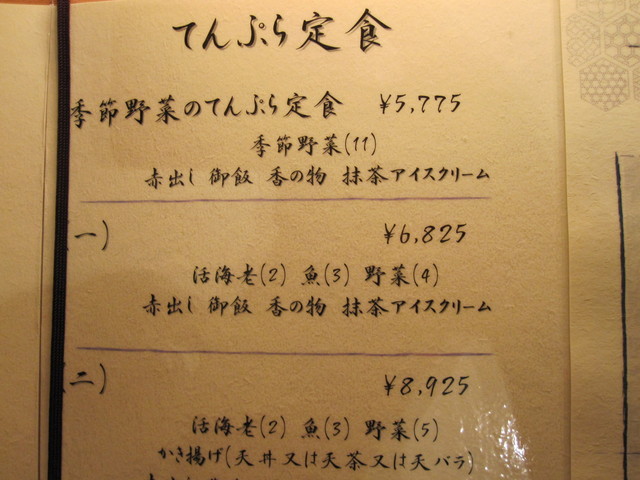 てんぷら定食
季節野菜のてんぷら定食 ¥5,775
季節野菜(11)
赤出し 御飯 香の物 抹茶アイスクリーム
(一) ¥6,825
活海老(2) 魚(3) 野菜(4)
赤出し 御飯 香の物 抹茶アイスクリーム
(二) ¥8,925
活海老(2) 魚(3) 野菜(5)
かき揚げ(天丼又は天茶又は天バラ)